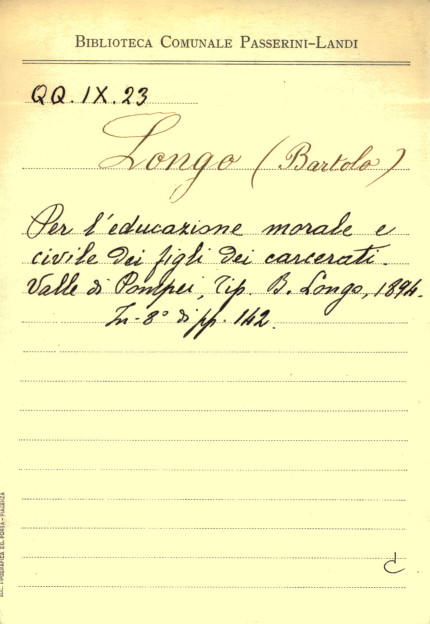 BIBLIOTECA COMUNALE PASSERINI-LANDI
QQ. IX. 23
Longo (Bartolo)
Per l'educazione morale e
civile dei figli dei carcerati.
Valle di Pompei, Tip. B. Longo, 1894.
In-8° di pp. 142.
C